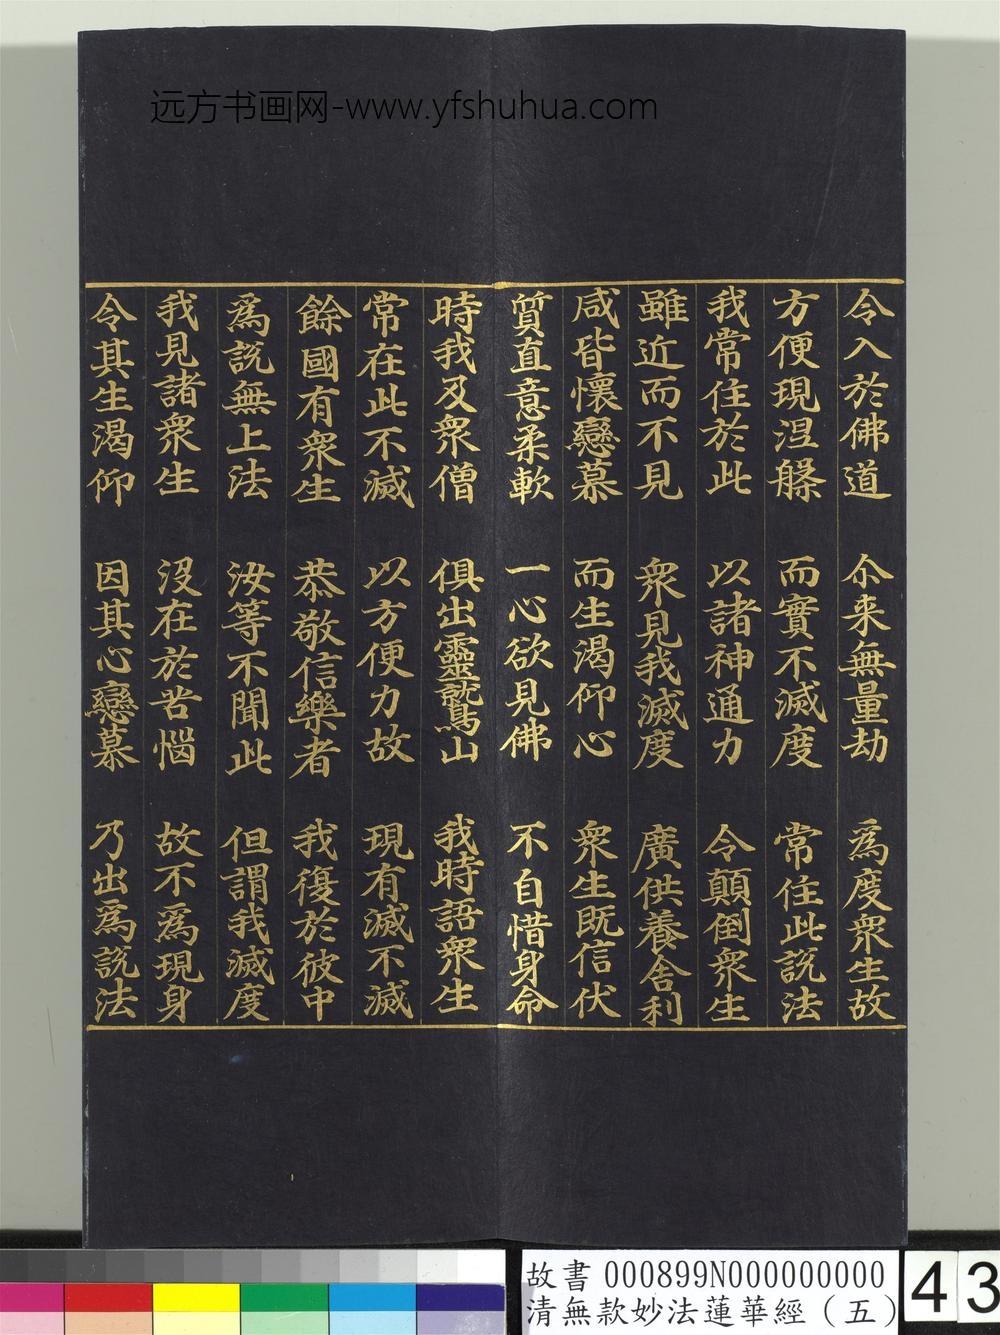 远方书画网-www.yfshuhua.com
令入於佛道 尒来無量劫 為度衆生故
方便現涅槃 而實不滅度 常住此說法
我常住於此 以諸神通力 令顛倒衆生
雖近而不見 衆見我滅度 廣供養舍利
咸皆懷戀慕 而生渴仰心 衆生既信伏
質直意柔軟 一心欲見佛 不自惜身命
時我及衆僧 俱出靈鷲山 我時語衆生
常在此不滅 以方便力故 現有滅不滅
餘國有衆生 恭敬信樂者 我復於彼中
為說無上法 汝等不聞此 但謂我滅度
我見諸衆生 沒在於苦惱 故不為現身
令其生渴仰 因其心戀慕 乃出為說法
故書 000899N000000000
清無款妙法蓮華經（五）
43